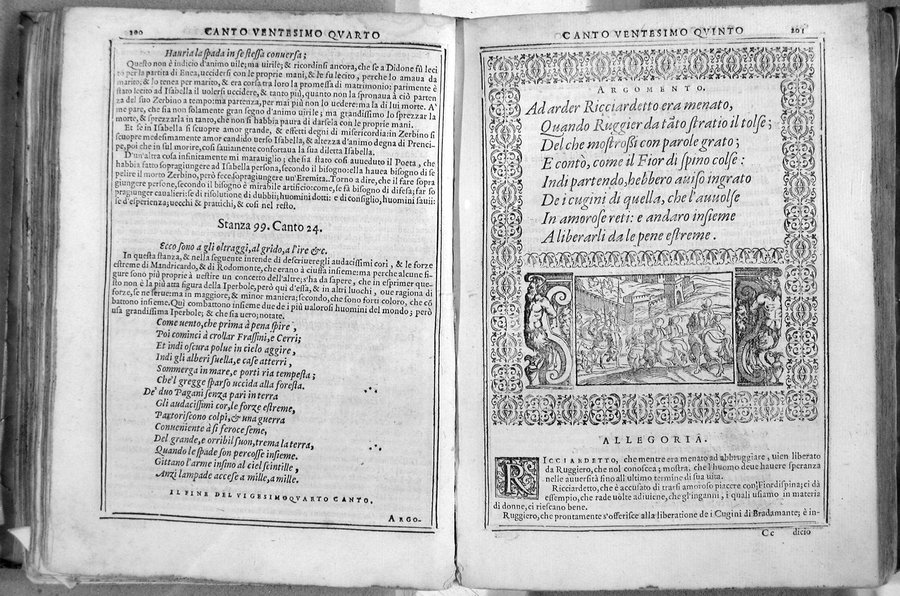 200
CANTO VENTESIMO QVARTO
Hauria la spada in se stessa conuersa;
Questo non è indicio d'animo uile; ma uirile; & ricordinsi ancora, che se a Didone fù leci
to per la partita di Enea, uccidersi con le proprie mani, & le fu lecito, perche lo amaua da
marito; & lo tenea per marito, & era corsa tra loro la promessa di matrimonio: parimente è
stato lecito ad Isabella il uolersi uccidere, & tanto più, quanto non la spronaua à ciò parten
za del suo Zerbino a tempo: ma partenza, per mai più non lo uedere: ma la di lui morte. A'
me pare, che sia non solamente gran segno d'animo uirile; ma grandissimo lo sprezzar la
morte, & sprezzarla in tanto, che non si habbia paura di darsela con le proprie mani.
Et se in Isabella si scuopre amor grande, & effetti degni di misericordia: in Zerbino
si scuopre medesimamente amor candido uerso Isabella, & altezza d'animo degna di Prenci-
pe, poi che in sul morire, così sauiamente confortaua la sua diletta Isabella.
D'un'altra cosa infinitamente mi marauiglio; che sia stato così aueduto il Poeta, che
habbia fatto sopragiungere ad Isabella persona, secondo il bisogno: ella hauea bisogno di se
pelire il morto Zerbino, però fece sopragiungere un'Eremita. Torno a dire, che il fare sopra
giungere persone, secondo il bisogno è mirabile artificio: come, se fà bisogno di difesa; far so
pragiunger caualieri: se di risolutione di dubbii; huomini dotti: e di consiglio, huomini sauii:
se d'esperienza; uecchi & prattichi, & così nel resto.
Stanza 99. Canto 24.
Ecco sono a gli oltraggi, al grido, a l'ire &c.
In questa stanza, & nella seguente intende di descriuere gli audacissimi cori, & le forze
estreme di Mandricardo, & di Rodomonte, che erano à ciussa insieme: ma perche alcune fi-
gure sono più proprie à uestire un concetto dell'altre; s'ha da sapere, che in esprimer que-
sto non è la più atta figura della Iperbole, però quì d'essa, & in altri luochi, oue ragiona di
forze, se ne serue: ma in maggiore, & minor maniera; secondo, che sono forti coloro, che cō
battono insieme. Quì combattono insieme due de i più valorosi huomini del mondo; però
usa grandissima Iperbole; & che sia uero; notate.
Come uento, che prima à pena spire,
Poi cominci à crollar Frassini, e Cerri;
Et indi oscura polue in cielo aggire,
Indi gli alberi suella, e case atterri,
Sommerga in mare, e porti ria tempesta;
Che'l gregge sparso uccida alla foresta.
De' duo Pagani senza pari in terra
Gli audacissimi cor, le forze estreme,
Partoriscono colpi, & una guerra
Conueniente à si feroce seme,
Del grande, e orribil suon, trema la terra,
Quando le spade son percosse insieme.
Gittano l'arme insino al ciel scintille,
Anzi lampade accese a mille, a mille.
IL FINE DEL VIGESIMOQVARTO CANTO.
ARGO-
CANTO VENTESIMO QVINTO
201
ARGOMENTO.
Ad arder Ricciardetto era menato,
Quando Ruggier da tāto stratio il tolse;
Del che mostrossi con parole grato;
E contò, come il Fior di spino colse:
Indi partendo, hebbero auiso ingrato
De i cugini di quella, che l'auuolse
In amorose reti: e andaro insieme
A liberarli da le pene estreme.
ALLEGORIA.
RICCIARDETTO, che mentre era menato ad abbruggiare, uien liberato
da Ruggiero, che nol conoscea; mostra, che l'huomo deue hauere speranza
nelle auuersità fino all'ultimo termine di sua uita.
Ricciardetto, che è accusato di trarsi amoroso piacere con Fiordispina; ci dà
essempio, che rade uolte adiuiene, che gl'inganni, i quali usiamo in materia
di donne, ci riescano bene.
Ruggiero, che prontamente s'offerisce alla liberatione de i Cugini di Bradamante; è in-
Cc
dicio